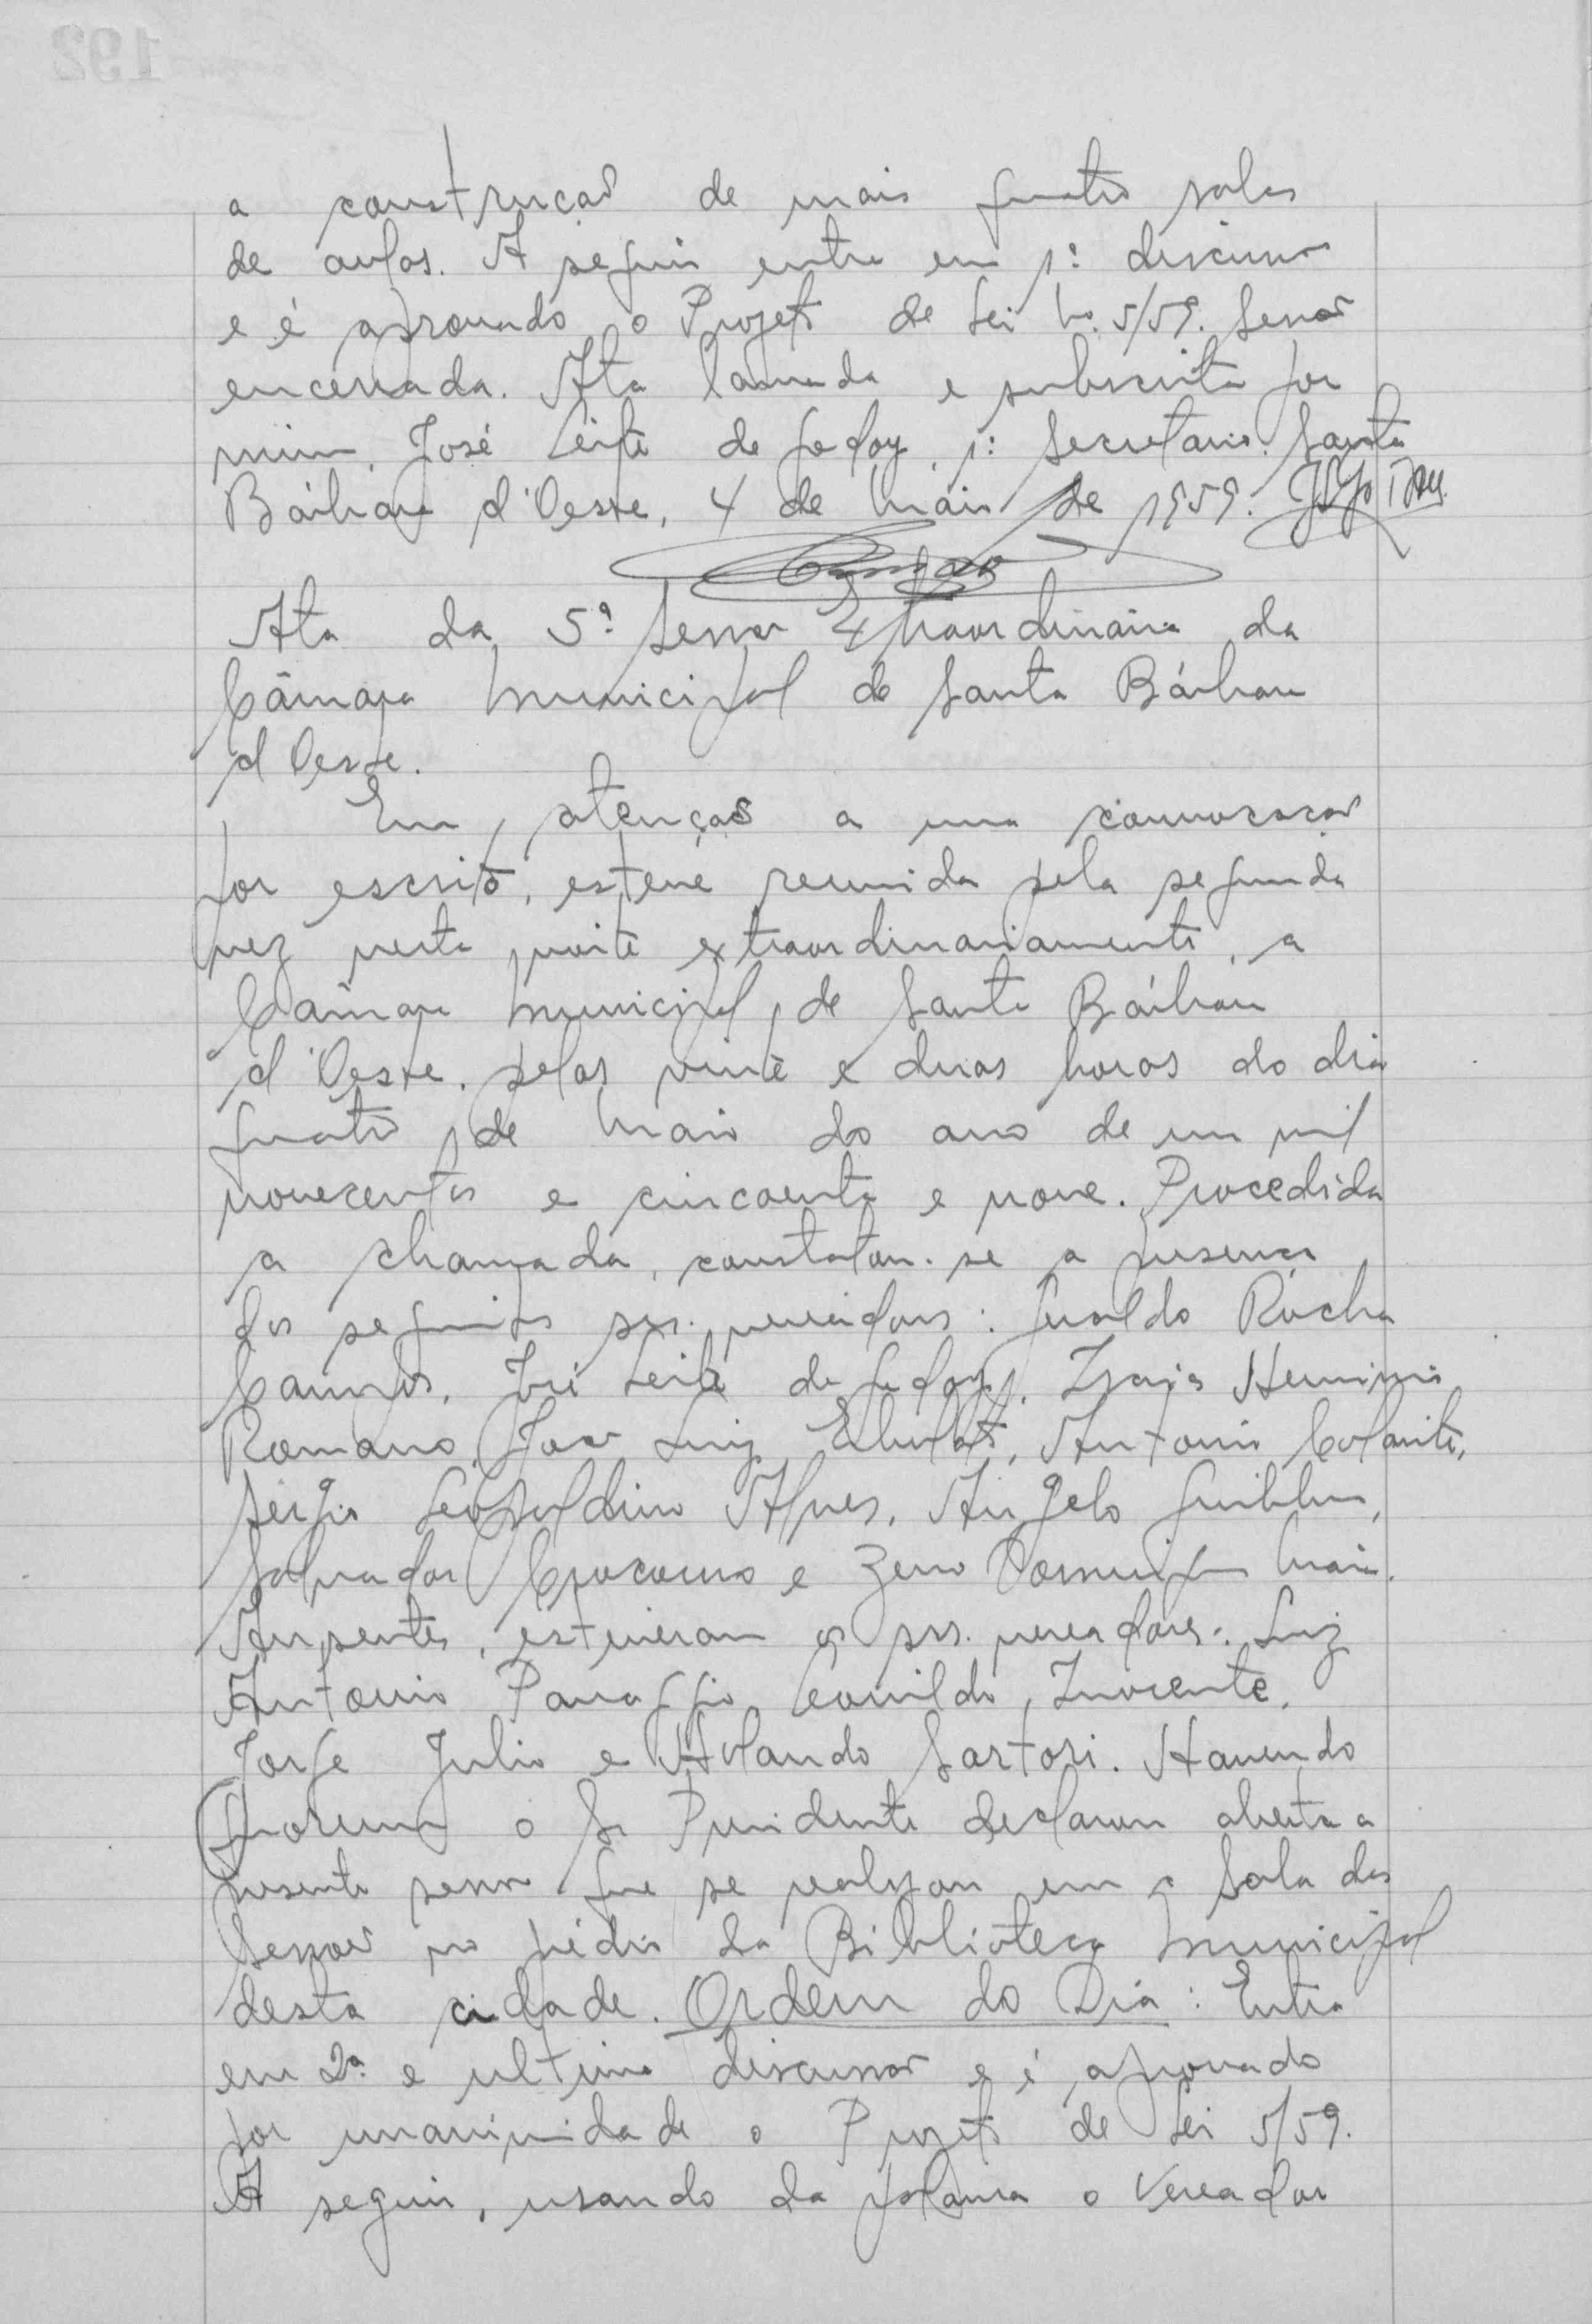 a construção de mais quatro salas
de aulas. A seguir entra em 1ª discussão
e é aprovado o Projeto de Lei no. 5/59. Sessão
encerrada. Ata lavrada e subscrita por
mim, José Leite de Godoy, 1º Secretario. Santa
Bárbara d'Oeste, 4 de Maio de 1959.
Ata da 5ª Sessão Extraordinaria da
Câmara Municipal de Santa Bárbara
d'Oeste.
Em atenção a uma convocação
por escrito, esteve reunida pela segunda
vez nesta noite extraordinariamente, a
Câmara Municipal de Santa Bárbara
d'Oeste, pelas vinte e duas horas do dia
quatro de Maio do ano de um mil
novecentos e cincoenta e nove. Procedida
a chamada, constatou-se a presença
dos seguintes srs. vereadores: Geraldo Rocha
Campos, José Leite de Godoy, Isaias Herminio
Romano, João Luiz, Antonio Colante,
Sergio Leopoldino Alves, Angelo Giubbina,
Salvador e Zeno Domingos Maia.
Ausentes, estiveram os srs. vereadores: Luiz
Antonio Panaggio, Leonildo, Inocente,
Jorge Julio e Holando Sartori. Havendo
quorum o Sr Presidente declarou aberta a
presente sessão que se realizou em a Sala das
Sessões no prédio da Biblioteca Municipal
desta cidade. Ordem do Dia: Entra
em 2ª e ultima discussão e é aprovado
por unanimidade o Projeto de Lei 5/59.
A seguir, usando da palavra o Vereador